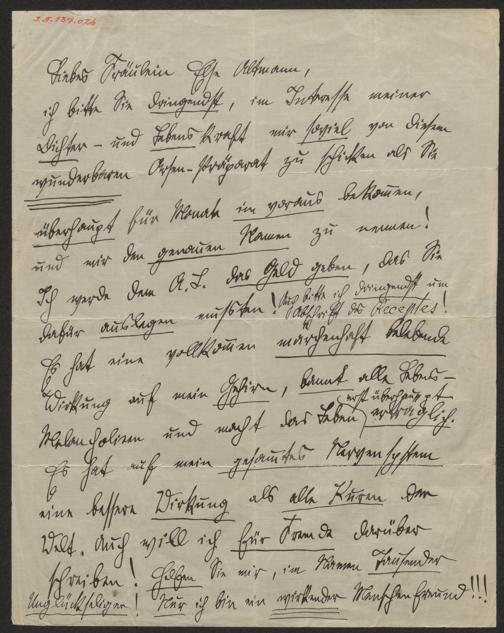 I.N. 137.076
Liebes Fräulein Else Altmann,
ich bitte Sie dringendst, im Interesse meiner
Dichter- und Lebenskraft mir soviel von diesem
wunderbaren Arsen-Präparat zu schicken als Sie
überhaupt für Monate im voraus bekommen,
und mir den genauen Namen zu nennen!
Ich werde dem A.L. das Geld geben, das Sie
dafür auslegen mussten! Auch bitte ich dringendst um
Abschrift des Receptes!
Es hat eine vollkommen märchenhaft belebende
Wirkung auf mein Gehirn, bannt alle Lebens-
Melancholieen und macht das Leben erst überhaupt
erträglich.
Es hat auf mein gesamtes Nervensystem
eine bessere Wirkung als alle Kuren der
Welt. Auch will ich für Fremde darüber
schreiben! Helfen Sie mir, im Namen Tausender
Unglückseliger! Nur ich bin ein wirkender Menschenfreund!!!